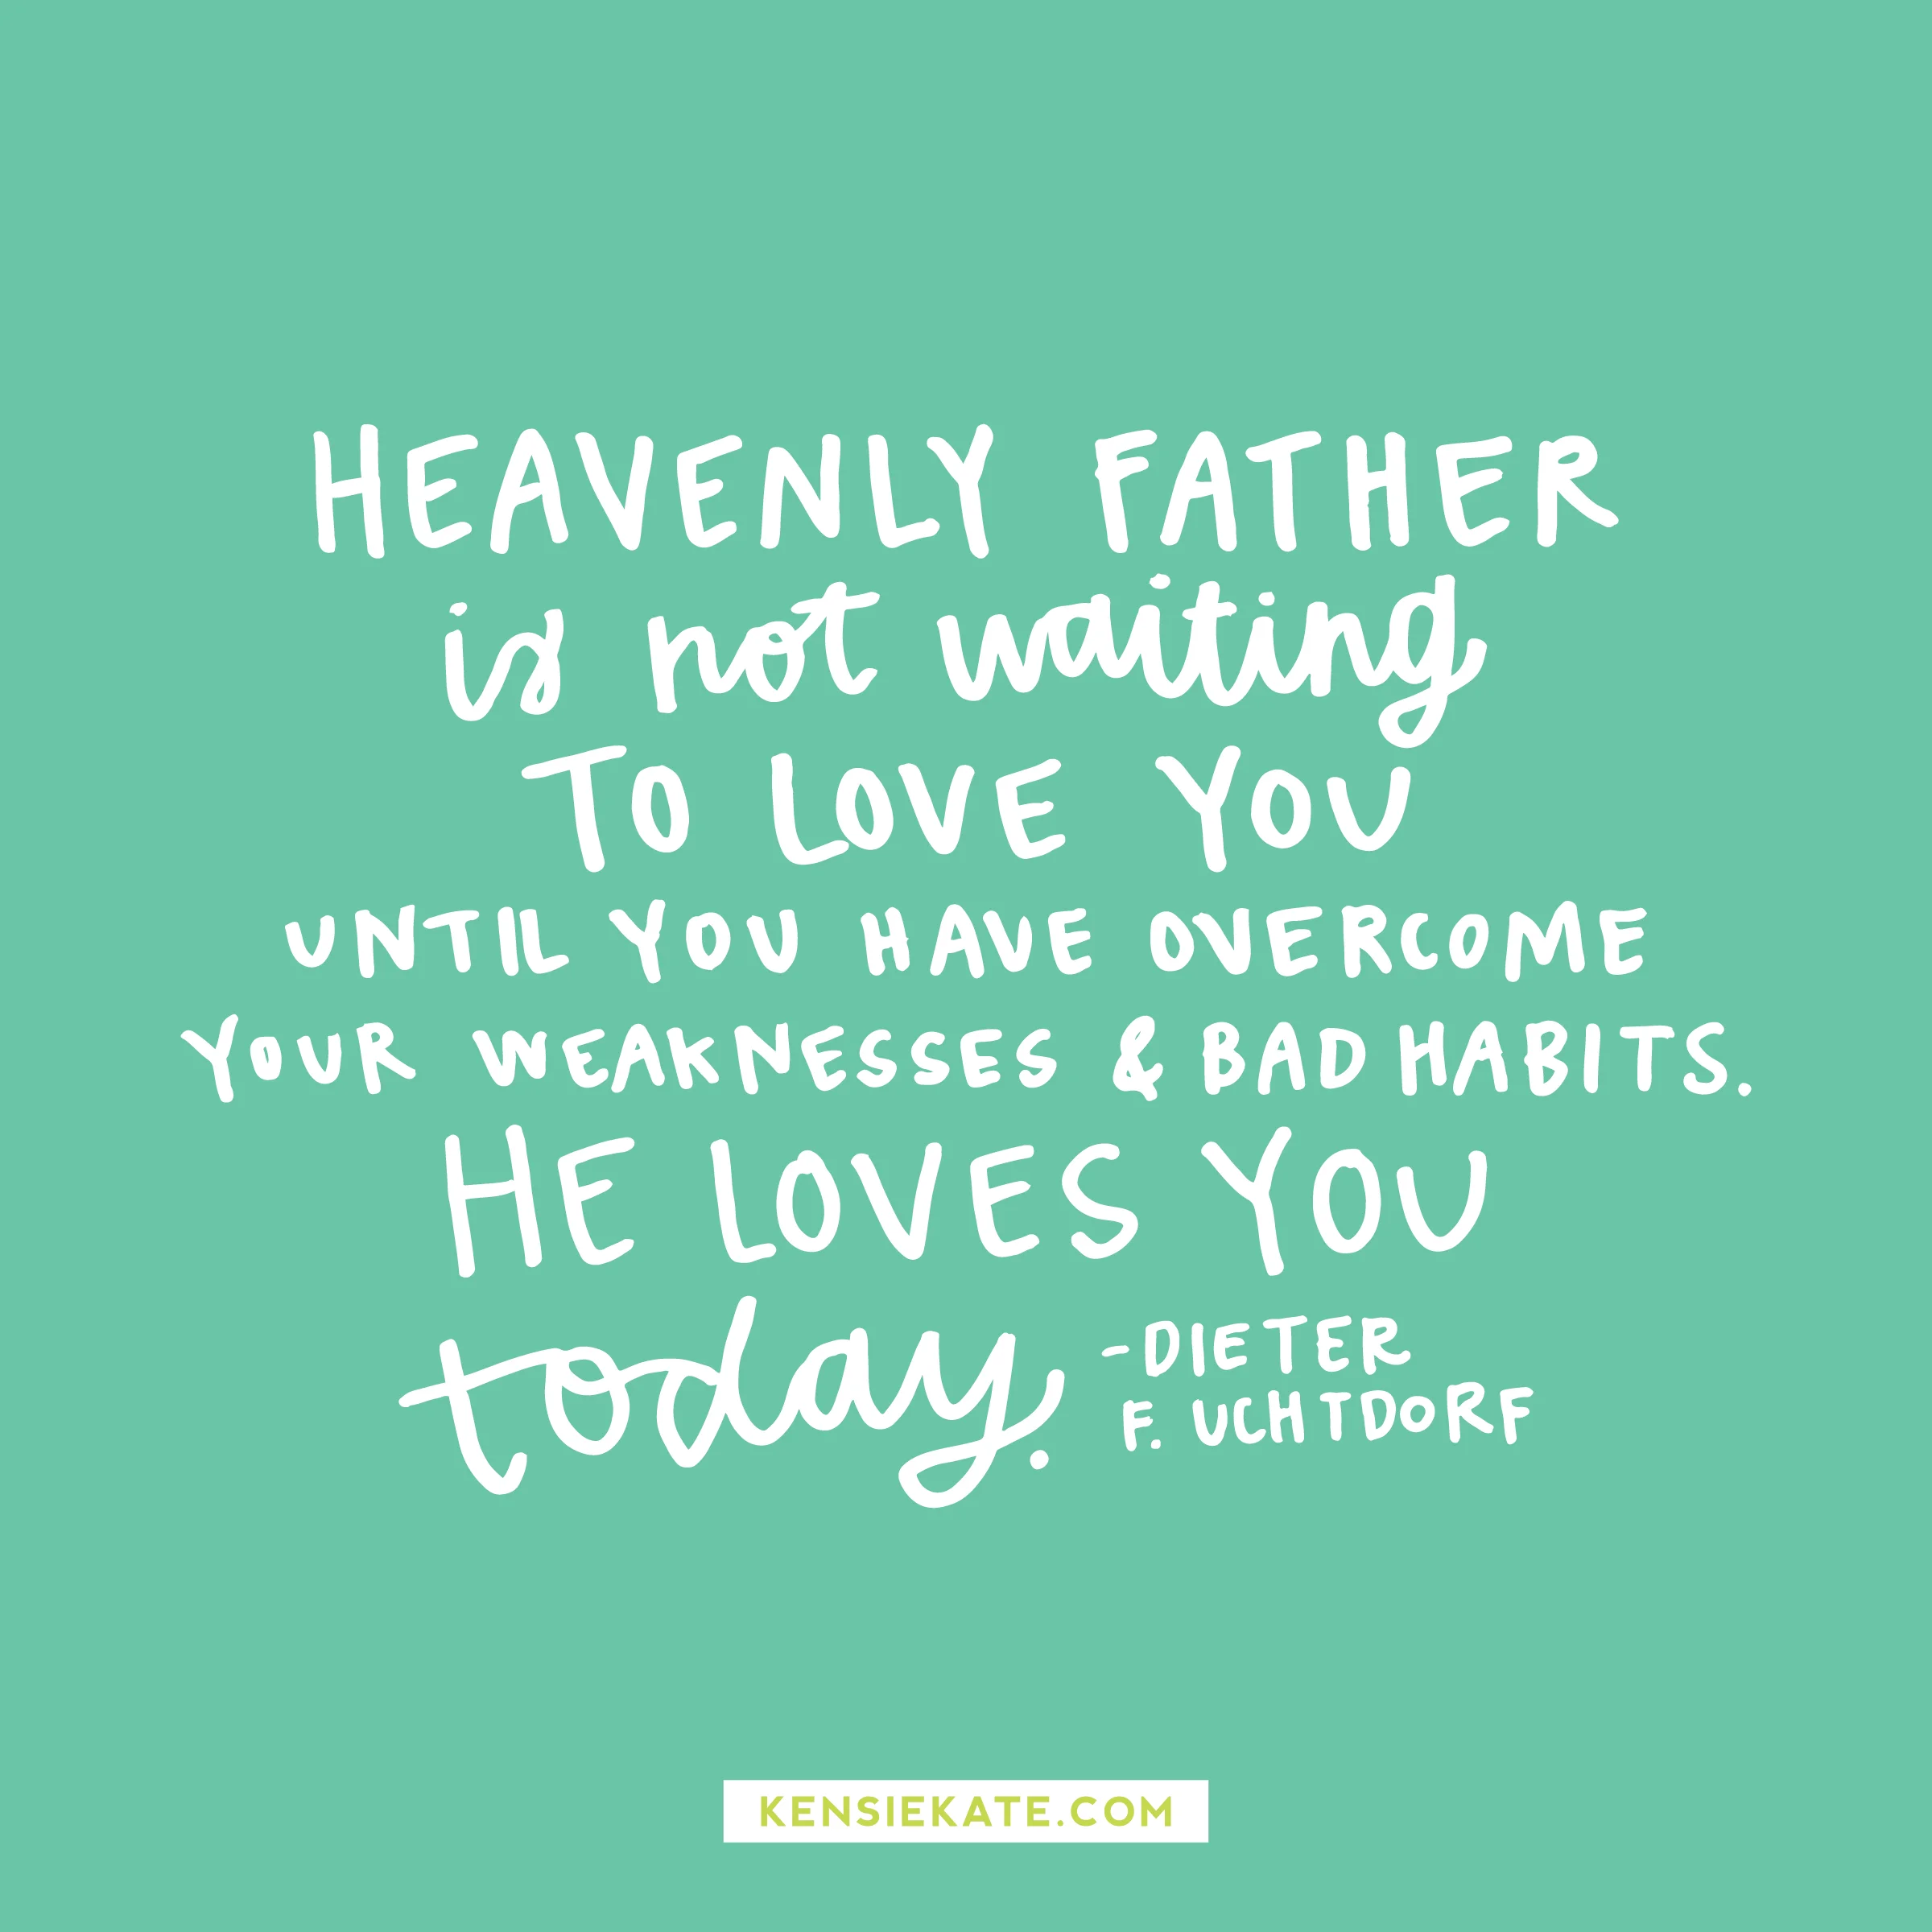 HEAVENLY FATHER
is not waiting
TO LOVE YOU
UNTIL YOU HAVE OVERCOME
YOUR WEAKNESSES & BAD HABITS.
HE LOVES YOU
today.
- DIETER
F. UCHTDORF
KENSIEKATE.COM